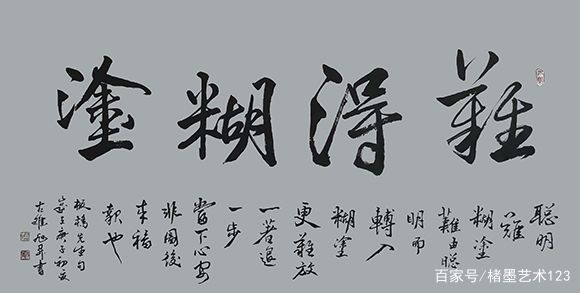 難得糊塗
聰明
難
糊塗
難由聰
明而
轉入
糊塗
更難放
一著退
一步
當下心安
非圖後
來福
報也
板橋先生句
歲在庚子初夏
書
百家号/楮墨艺术123